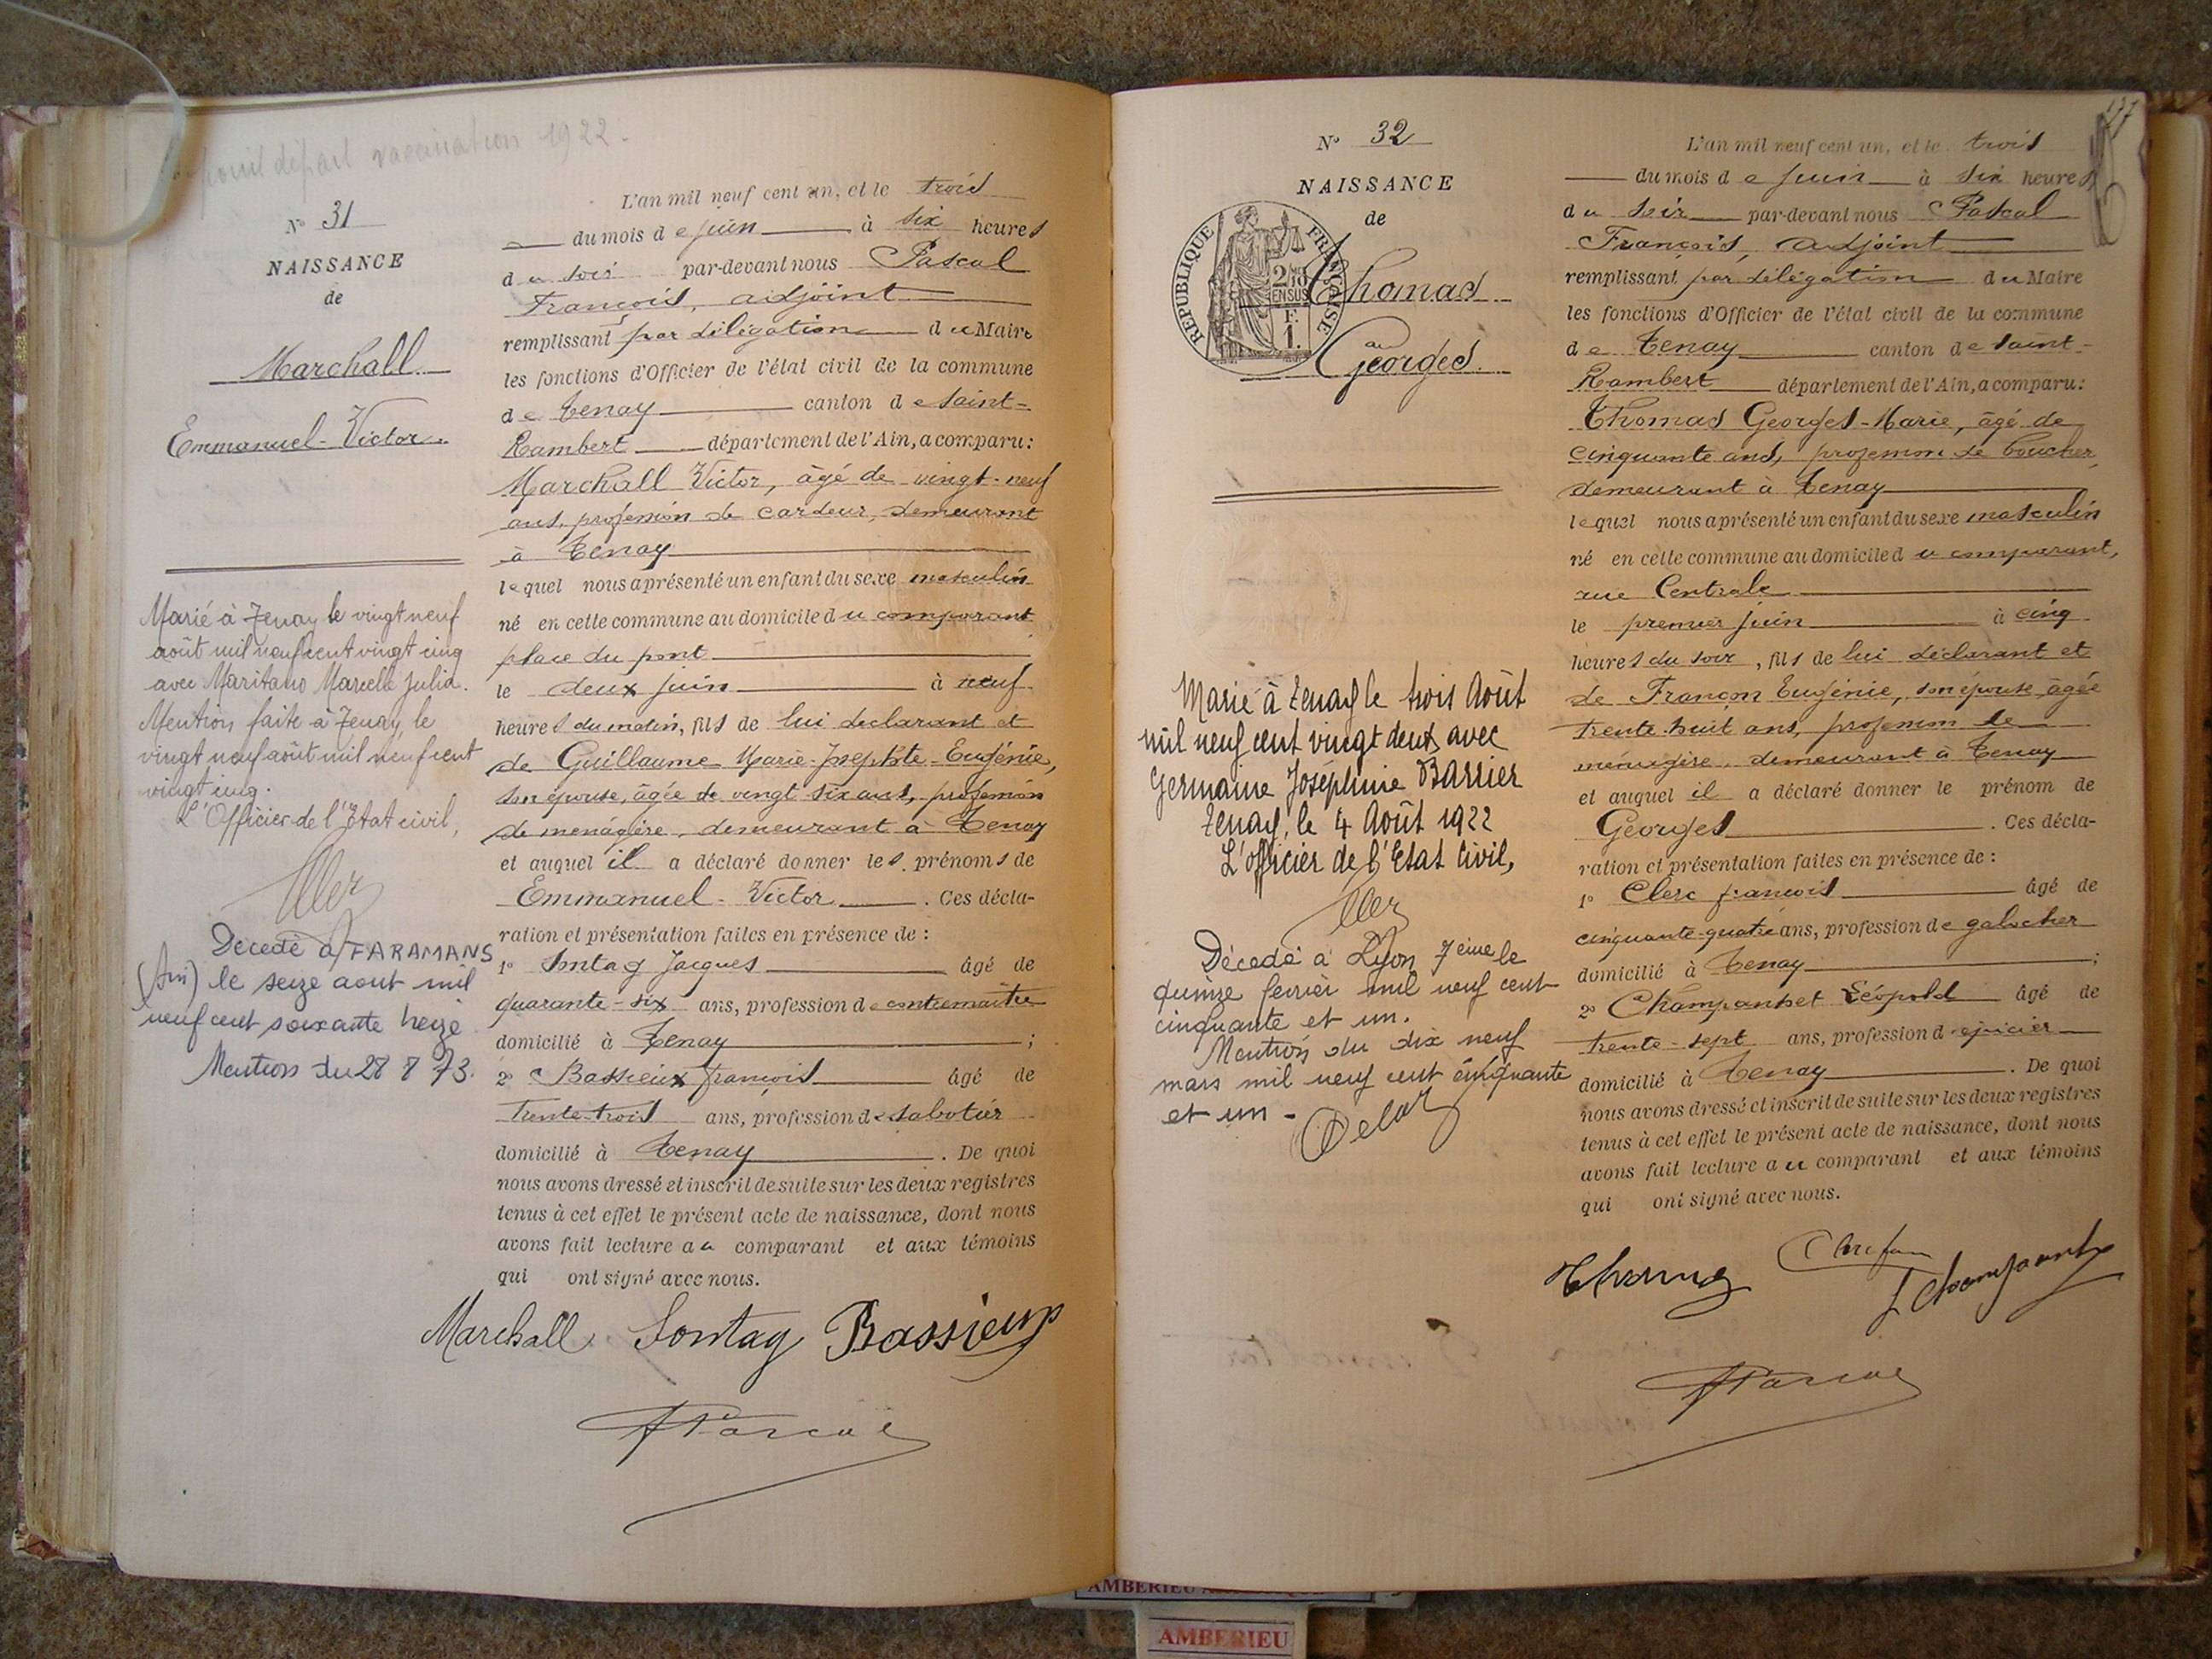 pouil départ vaccination 1922.
N° 31
NAISSANCE
de
Marchall
Emmanuel-Victor.
Marié à Tenay le vingt neuf
août mil neuf cent vingt cinq
avec Maritano Marcelle Julia.
Mention faite à Tenay, le
vingt neuf août mil neuf cent
vingt cinq.
L'Officier de l'Etat civil,
Décédé à FARAMANS
(Ain) le seize aout mil
neuf cent soixante treize
Mention du 28 8 73.
L'an mil neuf cent un, et le trois
du mois de juin à six heures
du soir par-devant nous Pascal
François, adjoint
remplissant par délégation du Maire
les fonctions d'Officier de l'état civil de la commune
de Tenay canton de Saint-
Rambert département de l'Ain, a comparu:
Marchall Victor, âgé de vingt-neuf
ans, profession de cardeur, demeurant
à Tenay
lequel nous a présenté un enfant du sexe masculin
né en cette commune au domicile du comparant
place du pont
le deux juin à neuf
heures du matin, fils de lui déclarant et
de Guillaume Marie-Josephte-Eugénie,
son épouse, âgée de vingt six ans, profession
de ménagère, demeurant à Tenay
et auquel il a déclaré donner les prénoms de
Emmanuel-Victor. Ces décla-
ration et présentation faites en présence de:
1° Sontag Jacques âgé de
quarante-six ans, profession de contremaître
domicilié à Tenay;
2° Bassieux françois âgé de
trente-trois ans, profession de sabotier
domicilié à Tenay. De quoi
nous avons dressé et inscrit de suite sur les deux registres
tenus à cet effet le présent acte de naissance, dont nous
avons fait lecture au comparant et aux témoins
qui ont signé avec nous.
Marchall Sontag Bassieux
Pascal
177
N° 32
NAISSANCE
de
REPUBLIQUE FRANÇAISE
2/10
EN SUS
F.
1.
Thomas
Georges.
Marié à Tenay le trois Août
mil neuf cent vingt deux avec
Germaine Joséphine BARRIER
Tenay, le 4 Août 1922
L'officier de l'Etat Civil,
Décédé à Lyon 7eme le
quinze fevrier mil neuf cent
cinquante et un.
Mention du dix neuf
mars mil neuf cent cinquante
et un -
L'an mil neuf cent un, et le trois
du mois de juin à six heures
du soir par-devant nous Pascal
François, adjoint
remplissant par délégation du Maire
les fonctions d'Officier de l'état civil de la commune
de Tenay canton de Saint-
Rambert département de l'Ain, a comparu:
Thomas Georges-Marie, âgé de
cinquante ans, profession de boucher,
demeurant à Tenay
lequel nous a présenté un enfant du sexe masculin
né en cette commune au domicile du comparant,
rue Centrale
le premier juin à cinq
heures du soir, fils de lui déclarant et
de Françon Eugénie, son épouse âgée
trente-huit ans, profession de
ménagère, demeurant à Tenay
et auquel il a déclaré donner le prénom de
Georges. Ces décla-
ration et présentation faites en présence de:
1° Clerc françois âgé de
cinquante-quatre ans, profession de galocher
domicilié à Tenay;
2° Champanhet Léopold âgé de
trente-sept ans, profession d'épicier
domicilié à Tenay. De quoi
nous avons dressé et inscrit de suite sur les deux registres
tenus à cet effet le présent acte de naissance, dont nous
avons fait lecture au comparant et aux témoins
qui ont signé avec nous.
Thomas
Pascal
AMBERIEU
AMBERIEU